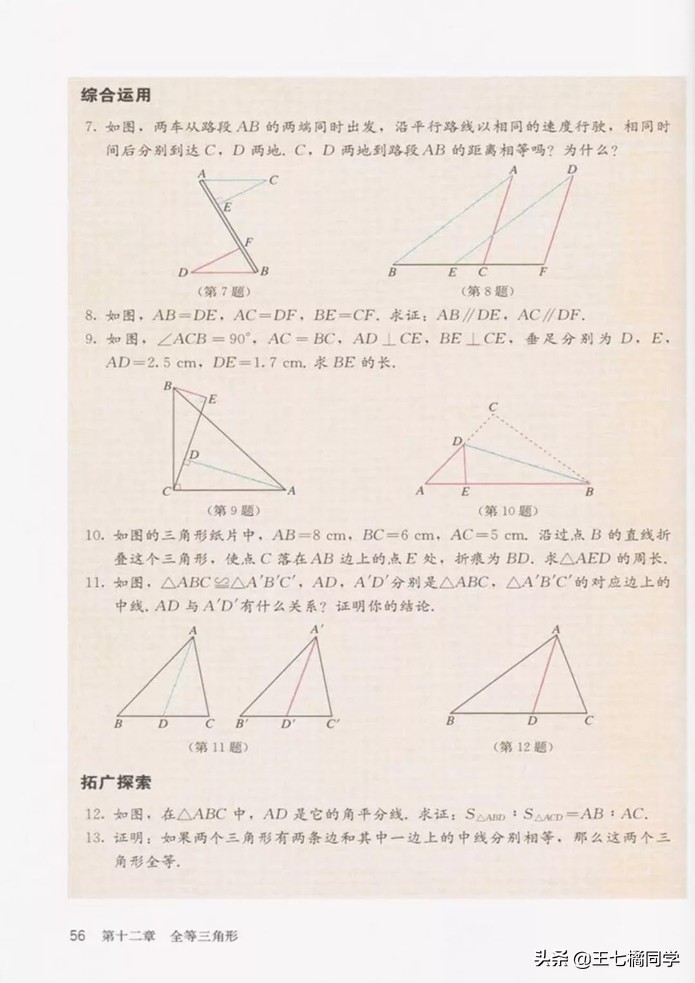 综合运用
7. 如图，两车从路段 AB 的两端同时出发，沿平行路线以相同的速度行驶，相同时
间后分别到达 C，D 两地. C，D 两地到路段 AB 的距离相等吗？为什么？
A C E F D B
A D B E C F
（第 7 题） （第 8 题）
8. 如图，AB=DE，AC=DF，BE=CF. 求证：AB∥DE，AC∥DF.
9. 如图，∠ACB=90°，AC=BC，AD⊥CE，BE⊥CE，垂足分别为 D，E，
AD=2.5 cm，DE=1.7 cm. 求 BE 的长.
B E D C A
C D A E B
（第 9 题） （第 10 题）
10. 如图的三角形纸片中，AB=8 cm，BC=6 cm，AC=5 cm. 沿过点 B 的直线折
叠这个三角形，使点 C 落在 AB 边上的点 E 处，折痕为 BD. 求△AED 的周长.
11. 如图，△ABC≌△A′B′C′，AD，A′D′分别是△ABC，△A′B′C′的对应边上的
中线. AD 与 A′D′有什么关系？证明你的结论.
A A′ A
B D C B′ D′ C′ B D C
（第 11 题） （第 12 题）
拓广探索
12. 如图，在△ABC 中，AD 是它的角平分线. 求证：S△ABD：S△ACD=AB：AC.
13. 证明：如果两个三角形有两条边和其中一边上的中线分别相等，那么这两个三
角形全等.
56 第十二章 全等三角形
头条 @王七橘同学